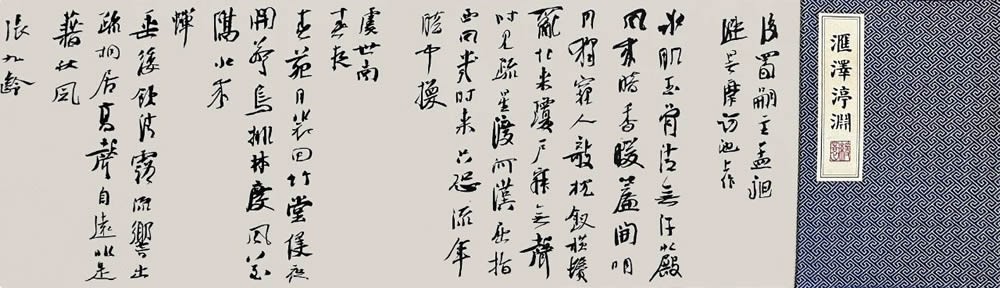 滙澤渟淵
後蜀嗣主孟昶
避暑摩訶池上作
冰肌玉骨清無汗水殿
風來暗香暖簾間明
月獨窺人欹枕釵橫鬢
亂起來瓊戶寂無聲
時見疏星渡河漢屈指
西風幾時來只恐流年
暗中換
虞世南
春夜
春苑月裴回竹堂侵夜
開驚鳥排林度風花
隔水來
蟬
垂緌飲清露流響出
疏桐居高聲自遠非是
藉秋風
張九齡